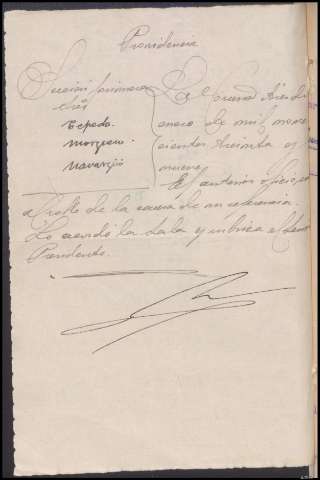 Providencia
Sección primera
Sres
Cepeda
Marzano
Navarejo
La Coruña treinta
enero de mil nove
cientos treinta y
nueve.
El anterior oficio,
al rollo de la causa de su referencia.
Lo acordó la Sala y rubrica el Señor
Presidente.